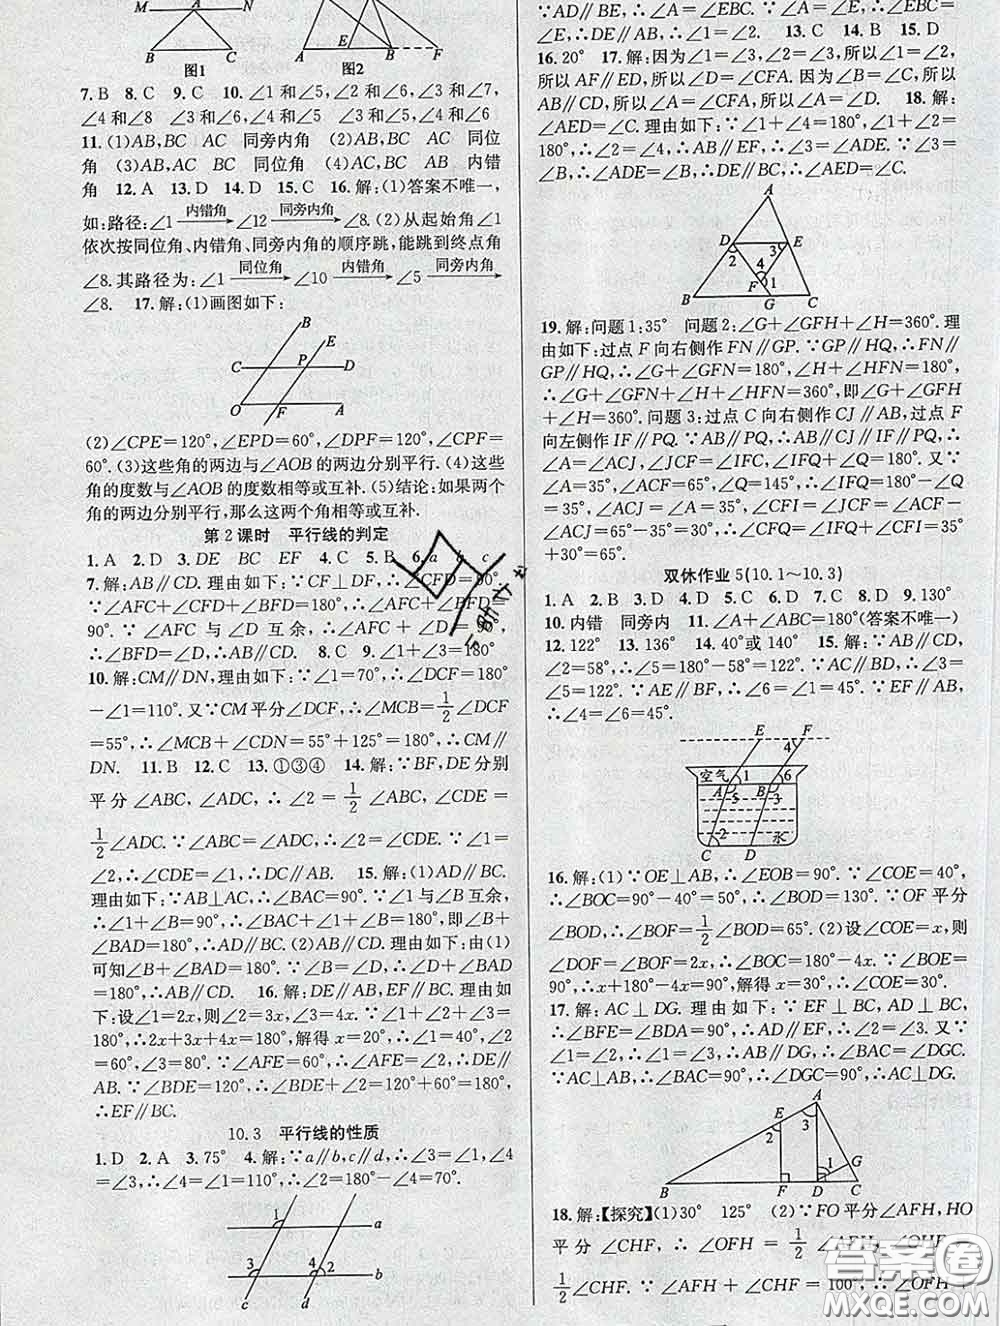 M A N
B C
图1
A E B F
图2
7. B 8. C 9. C 10. ∠1 和∠5, ∠2 和∠6, ∠3 和∠7,
∠4 和∠8 ∠3 和∠5, ∠4 和∠6
11. (1)AB,BC AC 同旁内角 (2)AB,BC AC 同位
角 (3)AB,AC BC 同位角 (4)AC,BC AB 内错
角 12. A 13. D 14. D 15. C 16. 解:(1)答案不唯一,
如:路径:∠1 —内错角→ ∠12 —同旁内角→ ∠8. (2)从起始角∠1
依次按同位角、内错角、同旁内角的顺序跳,能跳到终点角
∠8. 其路径为:∠1 —同位角→ ∠10 —内错角→ ∠5 —同旁内角→
∠8. 17. 解:(1)画图如下:
B E
C P D
O F A
(2)∠CPE=120°,∠EPD=60°,∠DPF=120°,∠CPF=
60°. (3)这些角的两边与∠AOB 的两边分别平行. (4)这些
角的度数与∠AOB 的度数相等或互补. (5)结论:如果两个
角的两边分别平行,那么这两个角相等或互补.
第 2 课时 平行线的判定
1. A 2. D 3. DE BC EF 4. C 5. B 6. a b c
7. 解:AB∥CD. 理由如下:∵CF⊥DF,∴∠CFD=90°.
∵∠AFC+∠CFD+∠BFD=180°,∴∠AFC+∠BFD=
90°. ∵∠AFC 与∠D 互余,∴∠AFC+∠D=90°,
∴∠BFD=∠D,∴AB∥CD. 8. C 9. ∠1+∠3=180°
10. 解:CM∥DN, 理由如下:∵∠1=70°,∴∠DCF=180°
-∠1=110°. 又∵CM 平分∠DCF,∴∠MCF=1/2∠DCF
=55°,∴∠MCF+∠CDN=55°+125°=180°,∴CM∥
DN. 11. B 12. C 13. ①③④ 14. 解:∵BF,DE 分别
平分∠ABC,∠ADC,∴∠2=1/2∠ABC,∠CDE=
1/2∠ADC. ∵∠ABC=∠ADC,∴∠2=∠CDE. ∵∠1=
∠2,∴∠1=∠CDE,∴DC∥AB. 15. 解:(1)AD∥BC.
理由如下:∵AB⊥AC,∴∠BAC=90°. ∵∠1 与∠B 互余,
∴∠1+∠B=90°,∴∠BAC+∠1+∠B=180°,即∠B+
∠BAD=180°,∴AD∥BC. (2)AB∥CD. 理由如下:由(1)
可知∠B+∠BAD=180°. ∵∠B=∠D,∴∠D+∠BAD=
180°,∴AB∥CD. 16. 解:DE∥AB,EF∥BC. 理由如
下:设∠1=2x,则∠2=3x,∠3=4x. ∵∠1+∠2+∠3=
180°,∴2x+3x+4x=180°,解得 x=20°,∴∠1=40°,∠2
=60°,∠3=80°. ∵∠AFE=60°,∴∠AFE=∠2,∴DE∥
AB. ∵∠BDE=120°,∴∠BDE+∠2=120°+60°=180°,
∴EF∥BC.
10.3 平行线的性质
1. D 2. A 3. 75° 4. 解:∵a∥b,c∥d,∴∠1=∠3,∠4
=∠2. ∵∠3=∠4,∴∠2=∠1=110°,∴∠4=∠2=110°.
1 a
3 4 2 b
c d
∵AD∥BE,∴∠A=∠EBC. ∵∠A=∠E,∴∠EBC=
∠E,∴DE∥AB,∴∠1=∠2. 13. C 14. B 15. D
16. 20° 17. 解:因为∠1=∠3,∠1=∠2,所以∠2=∠3,
所以 AF∥ED,所以∠D=∠CFA. 因为∠B=∠C,所以
AB∥CD,所以∠A=∠CFA,所以∠A=∠D. 18. 解:
∠AED=∠C. 理由如下:∵∠1+∠4=180°,∠1+∠2=
180°,∴∠2=∠4,∴AB∥EF,∴∠3=∠ADE. ∵∠3=
∠B,∴∠ADE=∠B,∴DE∥BC,∴∠AED=∠C.
A
D E
2 3
4
F 1
B G C
19. 解:问题 1:35° 问题 2:∠G+∠GFH+∠H=360°. 理
由如下:过点 F 向右侧作 FN∥GP. ∵GP∥HQ,∴FN∥
GP∥HQ,∴∠G+∠GFN=180°,∠H+∠HFN=180°,
∴∠G+∠GFN+∠H+∠HFN=360°,即∠G+∠GFH
+∠H=360°. 问题 3:过点 C 向右侧作 CJ∥AB,过点 F
向左侧作 IF∥PQ. ∵AB∥PQ,∴AB∥CJ∥IF∥PQ,∴
∠A=∠ACJ,∠JCF=∠IFC,∠IFQ+∠FQP=180°. 又∵
∠A=∠ACJ=65°,∠Q=145°,∴∠IFQ=35°. ∵∠CFI=
∠JCF,∠ACF=∠ACJ+∠JCF,∴∠CFI=∠JCF=∠ACF
-∠ACJ=∠ACF-65°,∴∠CFQ=∠CFI+∠IFQ=∠ACF
-65°+35°=∠ACF-30°.
双休作业 5(10.1~10.3)
1. A 2. B 3. D 4. D 5. C 6. C 7. C 8. D 9. 130°
10. 内错 同旁内 11. ∠A+∠ABC=180°(答案不唯一)
12. 122° 13. 136° 14. 40°或 140° 15. 解:∵AB∥CD,
∠2=58°,∴∠5=180°-58°=122°. ∵AC∥BD,∴∠3=
∠5=122°. ∵AE∥BF,∴∠1=∠6=45°. ∵EF∥AB,
∴∠4=∠6=45°.
E F
4
空气 1 6
A B
5 3
2 水
C D
16. 解:(1)∵OE⊥AB,∴∠EOB=90°. ∵∠COE=40°,
∴∠BOC=90°-40°=50°,∴∠BOD=130°. ∵OF 平分
∠BOD,∴∠BOF=1/2∠BOD=65°. (2)设∠COE=x,则
∠DOF=∠BOF=2x,∴∠BOC=180°-4x. ∵∠BOE=
90°,∴x+180°-4x=90°,解得 x=30°,∴∠COE=30°.
17. 解:AC⊥DG. 理由如下:∵EF⊥BC,AD⊥BC,
∴∠BFE=∠BDA=90°,∴AD∥EF,∴∠2=∠3. 又∵
∠1=∠2,∴∠1=∠3,∴AB∥DG,∴∠BAC=∠DGC.
∵AC⊥AB,∴∠BAC=90°,∴∠DGC=90°,∴AC⊥DG.
A
E 3
2 G
1
B F D C
18. 解:【探究】(1)30° 125° (2)∵FO 平分∠AFH,HO
平分∠CHF,∴∠OFH=1/2∠AFH,
1/2∠CHF. ∵∠AFH+∠CHF=100°,∴∠OFH
答案圈
MXQE.COM